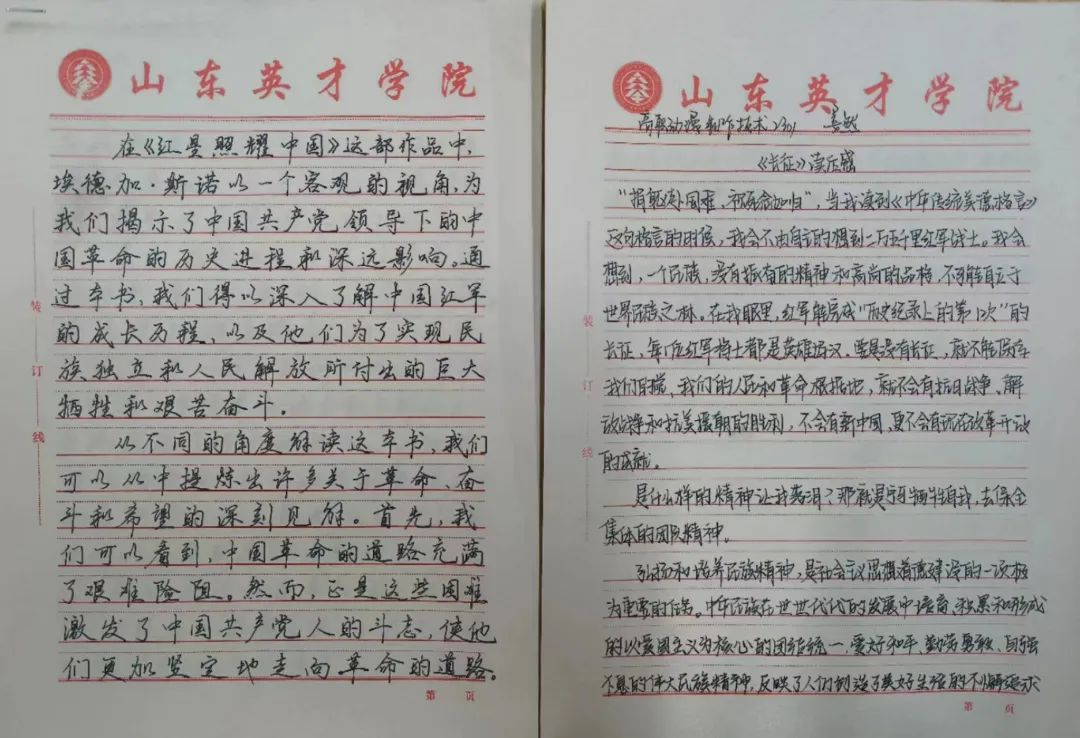 山东英才学院
在《红星照耀中国》这部作品中,
埃德加·斯诺以一个客观的视角,为
我们揭示了中国共产党领导下的中
国革命的历史进程和深远影响。通
过本书,我们得以深入了解中国红军
的成长历程,以及他们为了实现民
族独立和人民解放所付出的巨大
牺牲和艰苦奋斗。
从不同的角度解读这本书,我们
可以从中提炼出许多关于革命、奋
斗和希望的深刻见解。首先,我
们可以看到,中国革命的道路充满
了艰难险阻。然而,正是这些困难
激发了中国共产党人的斗志,使他
们更加坚定地走向革命的道路。
装
订
线
第 页
山东英才学院
高职动漫制作技术
《长征》读后感
“捐躯赴国难,视死忽如归”,当我读到《中华传统美德格言》
这句格言的时候,我会不由自主的想到二万五千里红军战士。我会
想到,一个民族,没有振奋的精神和高尚的品格,不可能自立于
世界民族之林。在我眼里,红军能完成“历史纪录上的第一次”的
长征,每位红军将士都是英雄好汉。要是没有长征,就不能
我们的人民和革命根据地,就不会有抗日战争、解
放战争和抗美援朝的胜利,不会有新中国,更不会有现在改革开放
的成就。
是什么样的精神让我落泪?那就是宁可牺牲自我,去保全
集体的团队精神。
弘扬和培养民族精神,是社会主义思想道德建设的一项极
为重要的任务。中华民族在世世代代的发展中培育、积累和形成
的以爱国主义为核心的团结统一、爱好和平、勤劳勇敢、自强
不息的伟大民族精神,反映了人们创造美好生活的不懈追求
装
订
线
第 页